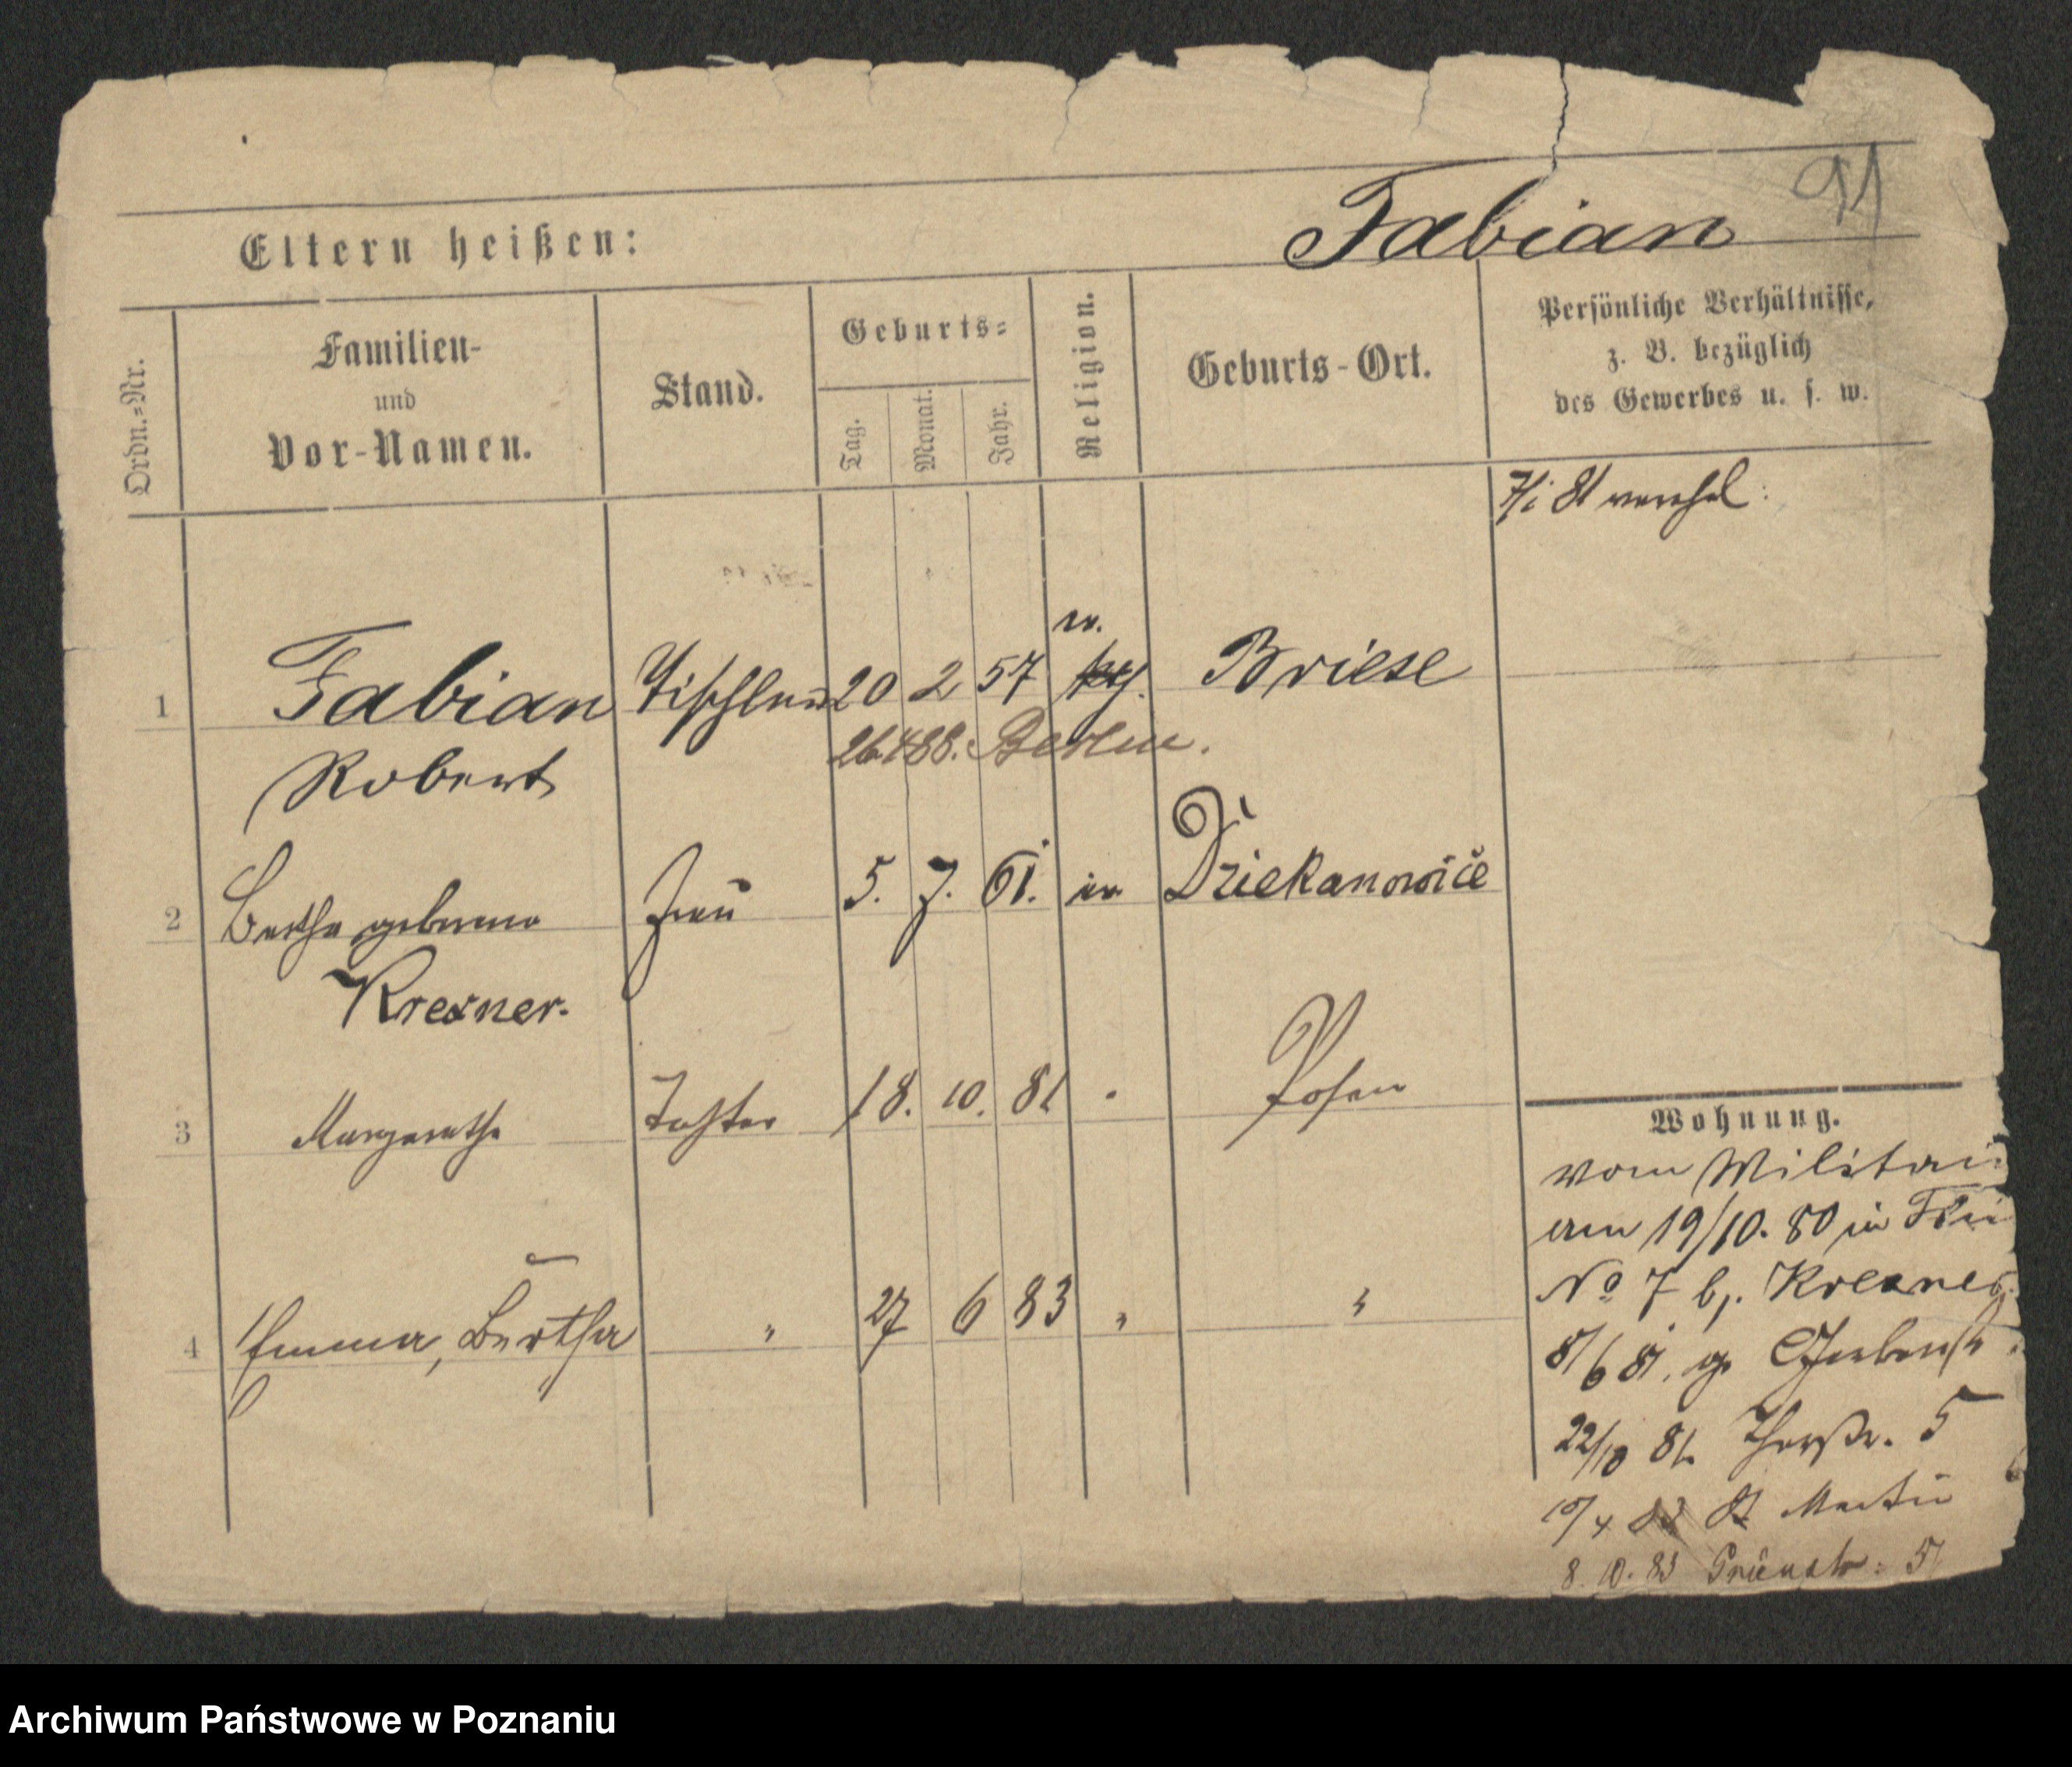 91
Eltern heißen:
Fabian
Ordn.=Nr.
Familien-
und
Vor-Namen.
Stand.
Geburts=
Tag.
Monat.
Jahr.
Religion.
Geburts-Ort.
Persönliche Verhältnisse,
z. B. bezüglich
des Gewerbes u. s. w.
7/1 81 verehel:
ev.
1 Fabian Tischler 20 2 57 Briese
Robert 26 4 88. Berlin.
2 Bertha geborene Frau 5. 7. 61. ev Dziekanowice
Krexner.
3 Margarethe Tochter 18. 10. 81 Posen
4 Emma, Bertha " 27 6 83 " "
Wohnung.
vom Militai
am 19/10. 80 in
No 7 b. Krexner
8/6 81. gr Gerberst
22/10 81. 5
10/4 83 St Martin
8. 10. 83 51
Archiwum Państwowe w Poznaniu